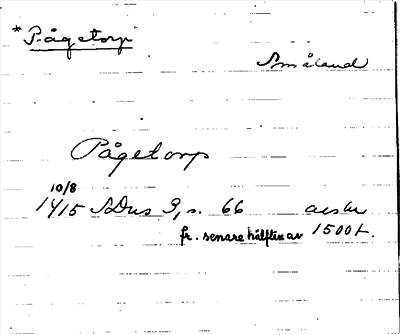 *Pågetorp
Småland
Pågetorp
10/8
1415 SDns 3, s. 66 avskr
fr. senare hälften av 1500t.